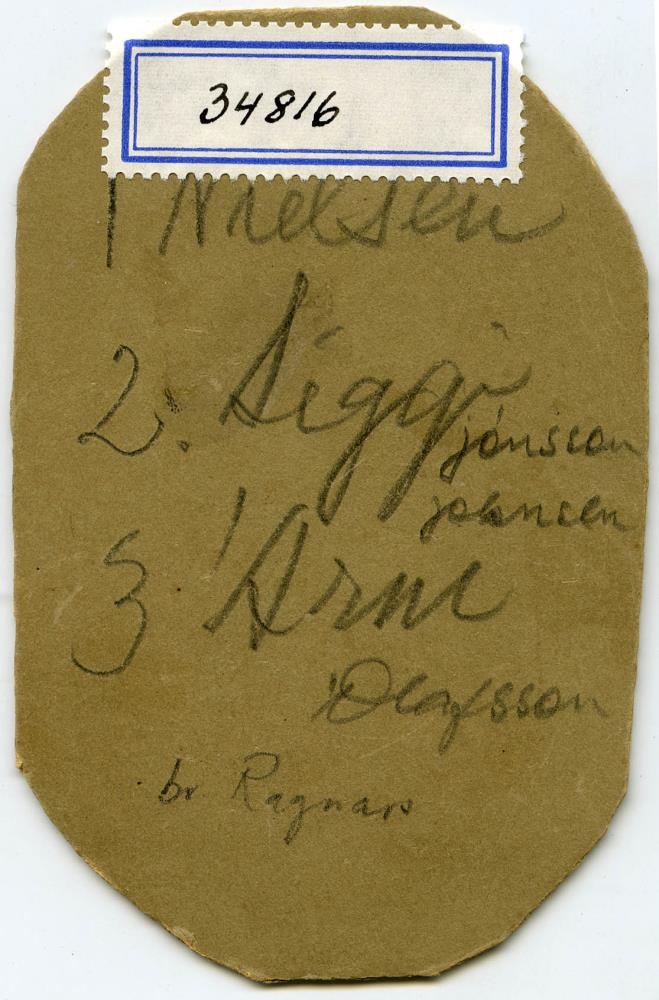 34816
1 Nielsen
2. Siggi
jónsson
johnsen
3 Árni
Ólafsson
br Ragnars